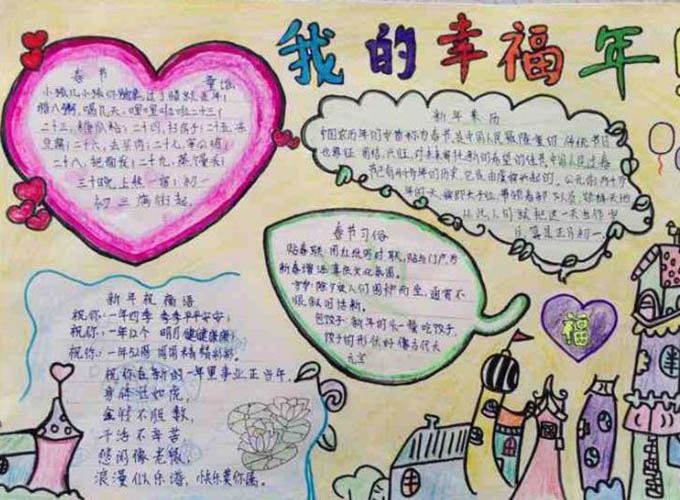 我的幸福年!
春节 童谣
小孩儿小孩你别馋,过了腊八就是年;
腊八粥,喝几天,哩哩啦啦二十三;
二十三,糖瓜粘;二十四,扫房子;二十五,冻
豆腐;二十六,去买肉;二十七,宰公鸡;
二十八,把面发;二十九,蒸馒头;
三十晚上熬一宿;初一
初二满街走。
新年来历
中国农历年的岁首称为春节,是中国人民最隆重的传统节日
也象征团结、兴旺,对未来寄托新的希望的佳节。中国人民过春
节已有4千多年的历史,它是由虞舜兴起的。公元前两千多
年的一天,舜即天子位,带领着部下人员,祭拜天地
从此人们就把这一天当作岁
首,算是正月初一
春节习俗
贴春联:用红纸写对联,贴与门户,为
新春增添喜庆文化氛围。
守岁:除夕夜人们围炉而坐,通宵不
眠,叙旧话新。
包饺子:新年的头一餐吃饺子,
饺子的形状好像古代大
元宝
新年祝福语
祝你:一年四季 季季平平安安;
祝你:一年12个 明月健健康康;
祝你:一年52周 周周精精彩彩。
祝你在新的一年里事业正当午,
身体壮如虎,
金钱不胜数,
干活不辛苦
悠闲像老鼠,
浪漫似乐谱,快乐莫你属。
福